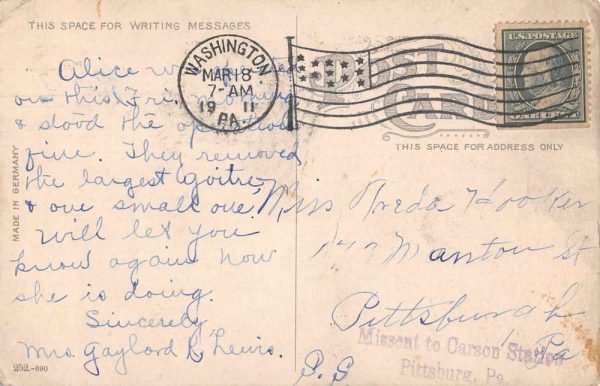 THIS SPACE FOR WRITING MESSAGES
Alice
on this Fri. morning
& stood the operation
fine. They removed
the largest goitre,
& one small one,
Will let you
know again how
she is doing.
Sincerely,
Mrs. Gaylord R. Lewis.
MADE IN GERMANY
252-690
WASHINGTON
MAR 18
7-AM
19 11
PA.
U.S. POSTAGE
ONE CENT
POST
CARD
THIS SPACE FOR ADDRESS ONLY
Miss Hooker
Manton St
Pittsburgh
Pa
S.S
Missent to Carson Station
Pittsburg, Pa.